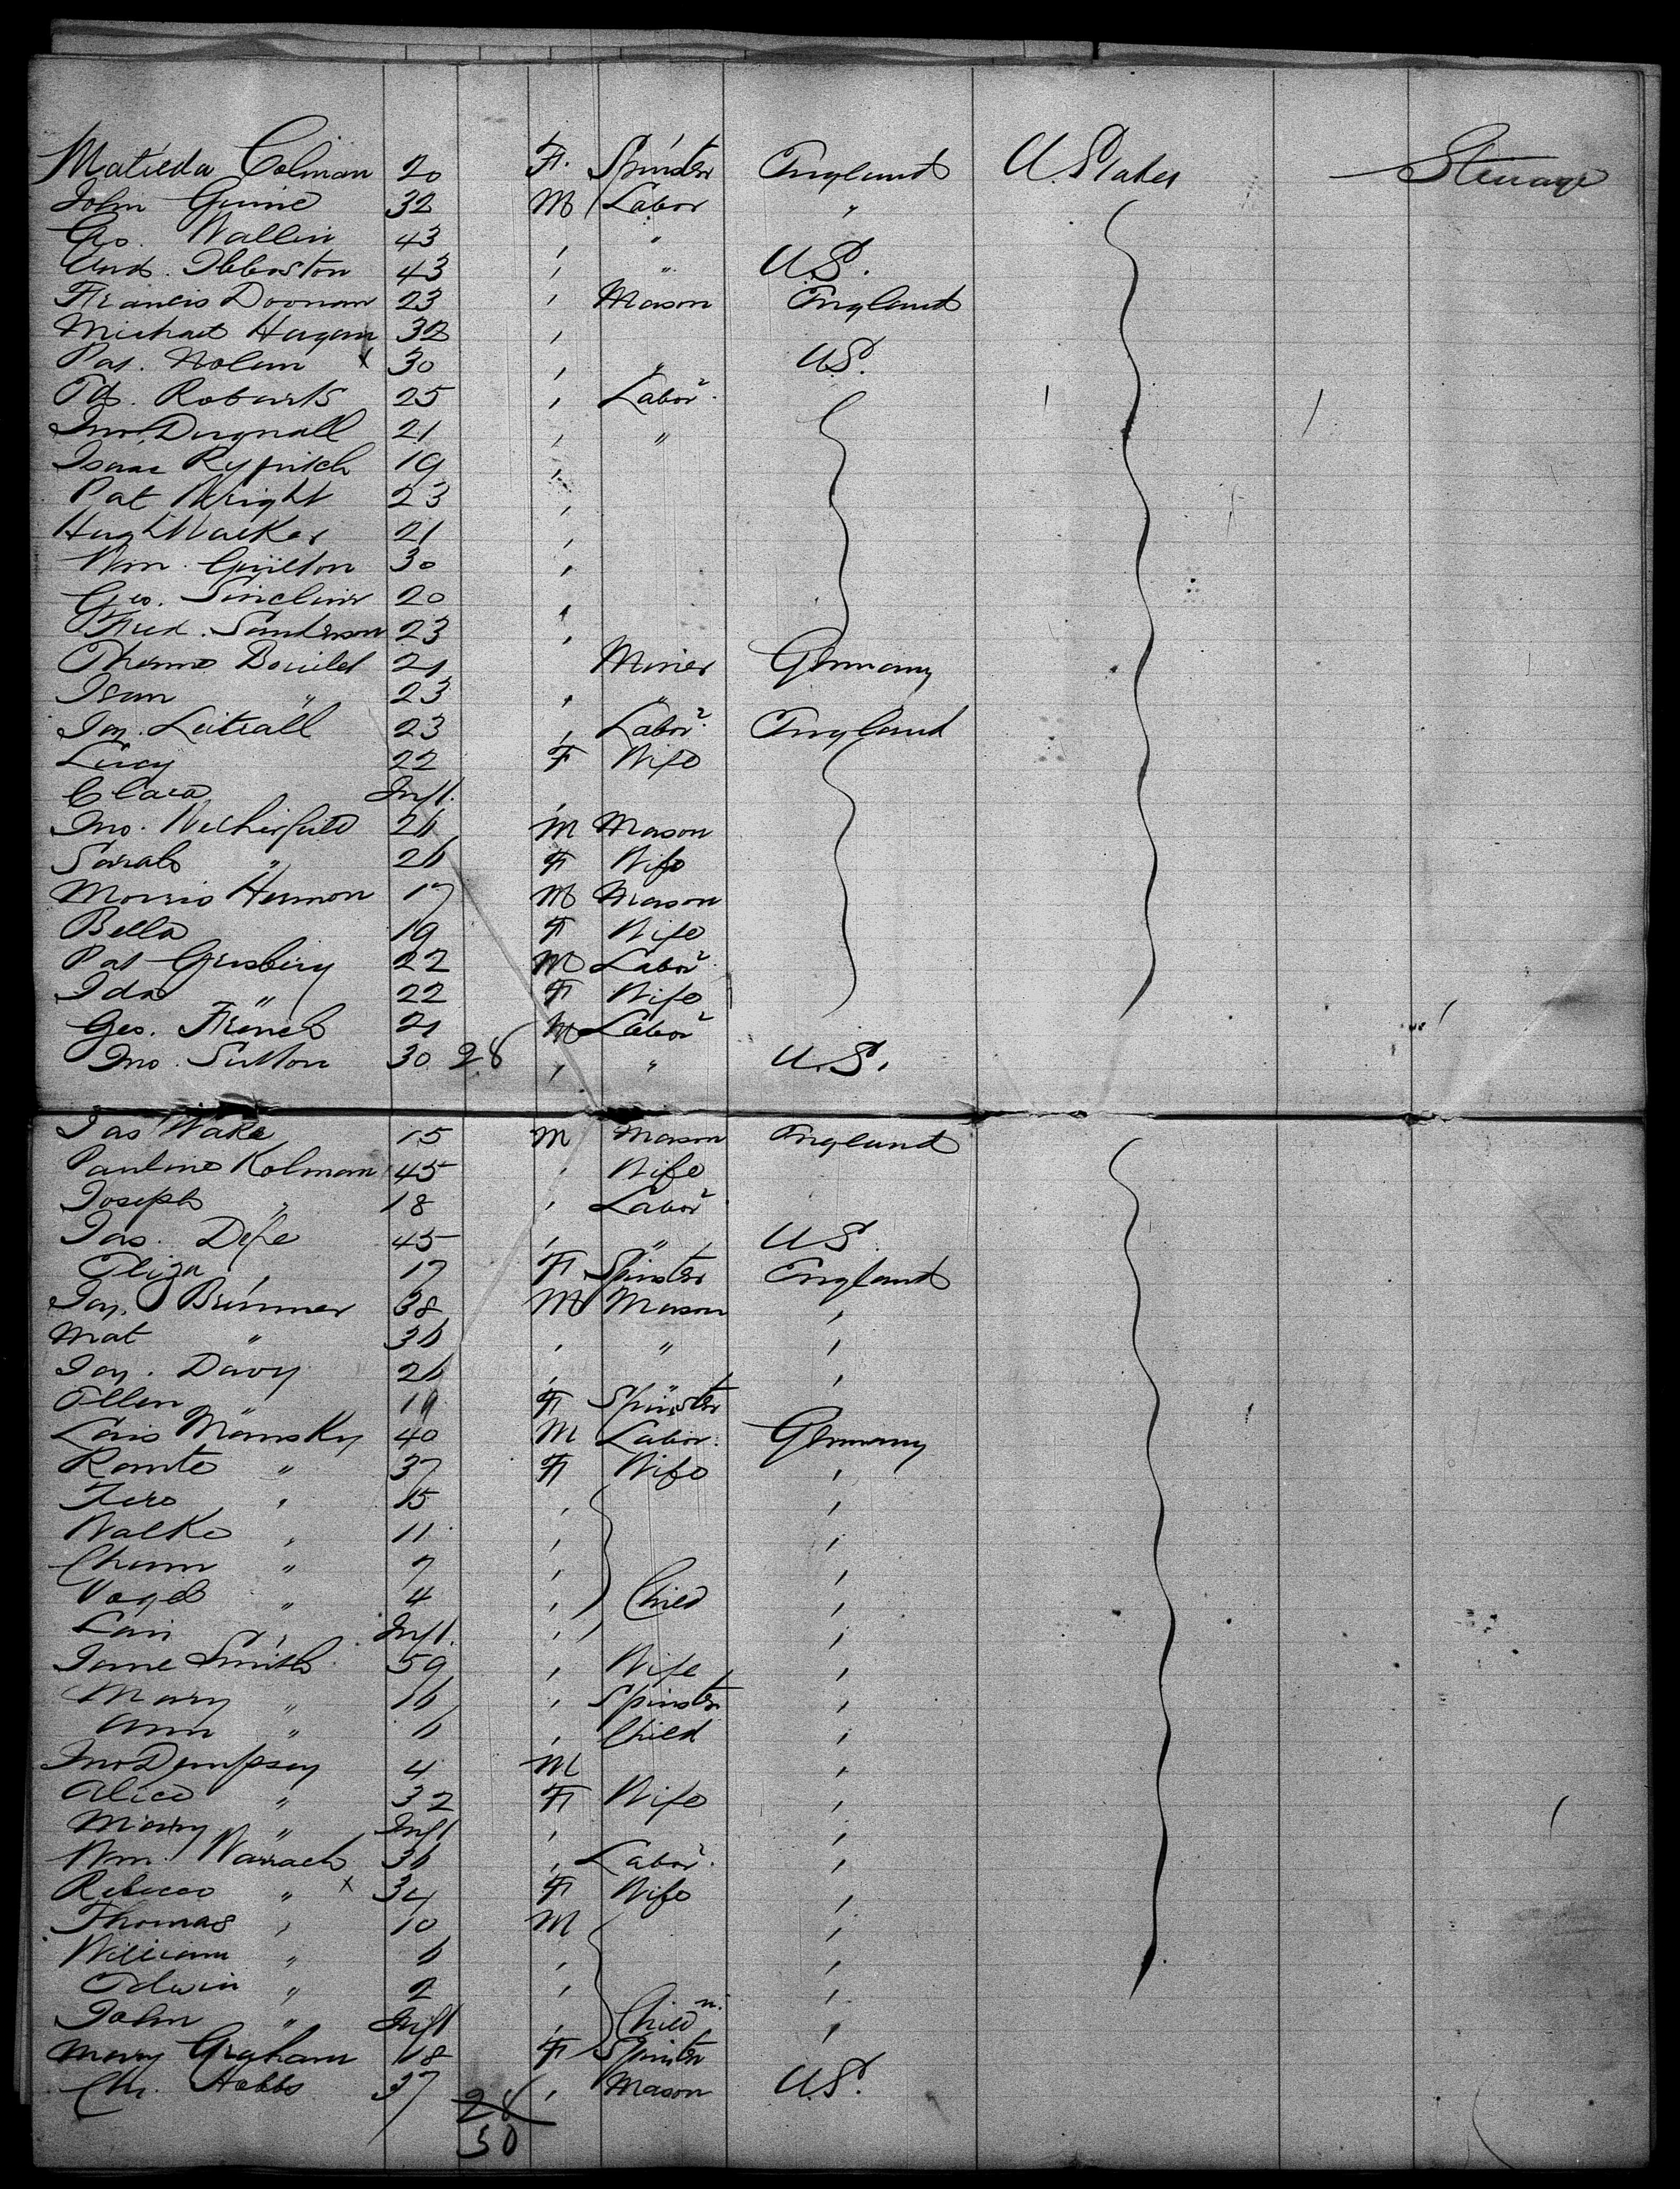 Matilda Colman 20 F. Spinster England U. States Steerage
John Guine 32 M Labor "
Geo. Wallin 43 , "
And. Ibberston 43 , " U.S.
Francis Doonan 23 , Mason England
Michael Hagan 32 ,
Pat. Nolan x 30 , " U.S.
Ed. Roberts 25 , Labor
Jno. Dugnall 21 , "
Isaac 19 ,
Pat Wright 23 ,
Hugh Walker 21 ,
Wm. Guilton 30 ,
Geo. Sinclair 20 ,
Fred. Sanderson 23 ,
21 Miner Germany
Isan " 23 , "
Jas. 23 , Labor England
Lucy 22 F Wife
Clara Inft. ,
Jno. 26 M Mason
Sarah " 26 F Wife
Morris Hermon 17 M Mason
Bella 19 F Wife
Pat 22 M Labor
Ida " 22 F Wife
Geo. French 21 M Labor
Jno. Sutton 30 28 , " U.S.
Jas Wake 15 M Mason England
Pauline Kolman 45 , Wife
Joseph " 18 , Labor
Jas. Defe 45 , " U.S.
Eliza , 17 F Spinster England
Jas. Brimmer 38 M Mason ,
Mat " 36 , " ,
Jas. Davy 26 , " ,
Ellen " 19 F Spinster
Mansky 40 M Labor. Germany
" 37 F Wife ,
" 15 , ,
" 11 , ,
" 7 , ,
" 4 , Child ,
" Inft. , ,
Jane Smith 59 , Wife ,
Mary " 16 , Spinster ,
Ann " 6 , Child ,
Jno Dempsey 4 M ,
Alice " 32 F Wife ,
Mary " Inft , ,
Wm. 36 , Labor. ,
Rebecca " x 34 F Wife ,
Thomas , 10 M ,
William " 6 , ,
Edwin " 2 , ,
John " Inft , Childn. ,
Mary Graham 18 F Spinster
Ch. Hobbs 37 28 , Mason U.S.
30